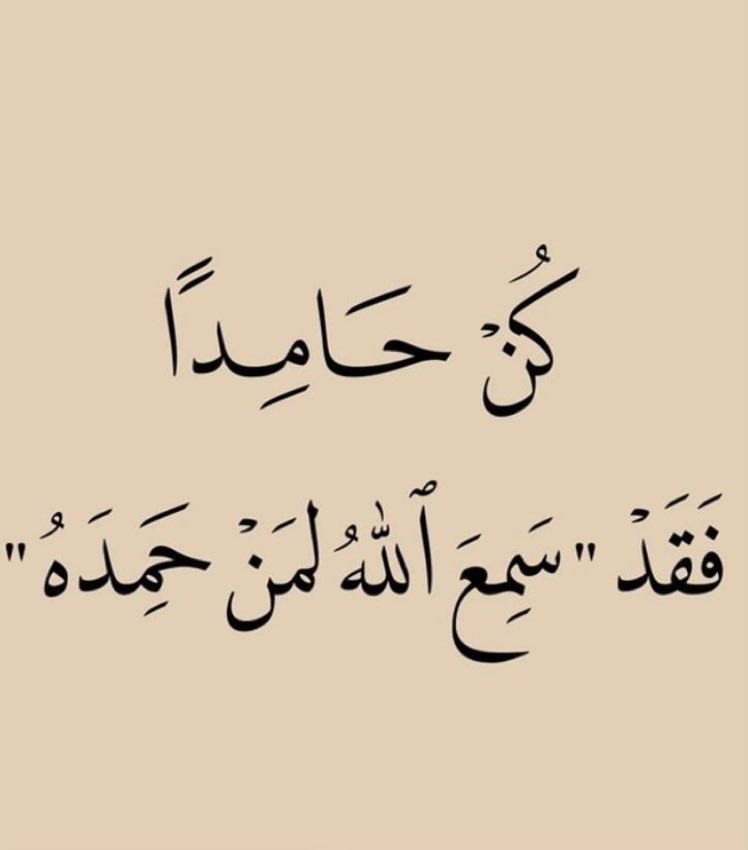 كُنْ حَامِداً
فَقَدْ "سَمِعَ ٱللّٰهُ لمَنْ حَمِدَهُ"